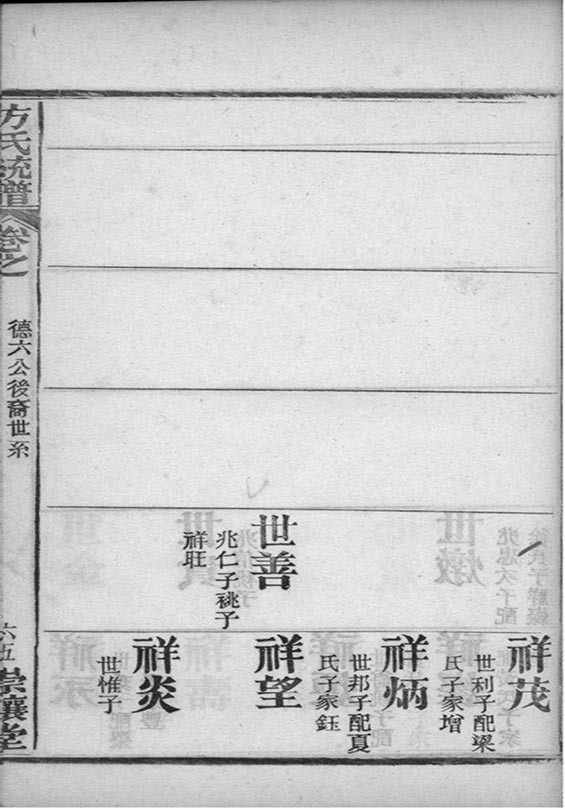 世善
兆仁子祧子
祥旺
祥茂
世利子配梁
氏子家增
祥炳
世邦子配夏
氏子家鈺
祥望
祥炎
世惟子
方氏統譜
卷之
德六公後裔世系
六五
崇讓堂